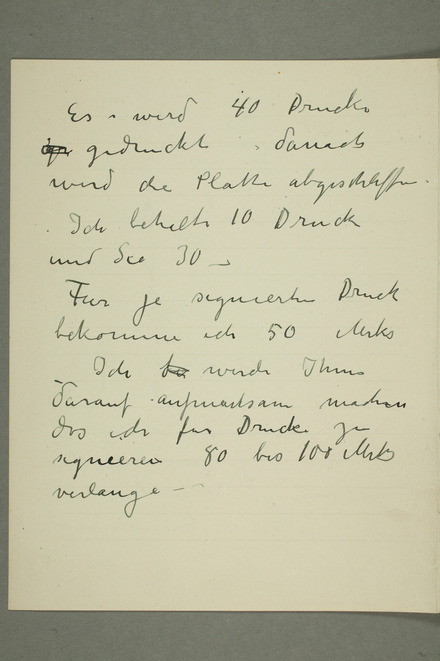 Es wird 40 Drucke
gedruckt, danach
wird die Platte abgeschliffen.
Ich behalte 10 Druck
und Sie 30 –
Für je signierten Druck
bekomme ich 50 Mrks
Ich werde Ihnen
darauf aufmerksam machen
das ich für Drucke zu
signieren 80 bis 100 Mrks
verlange –